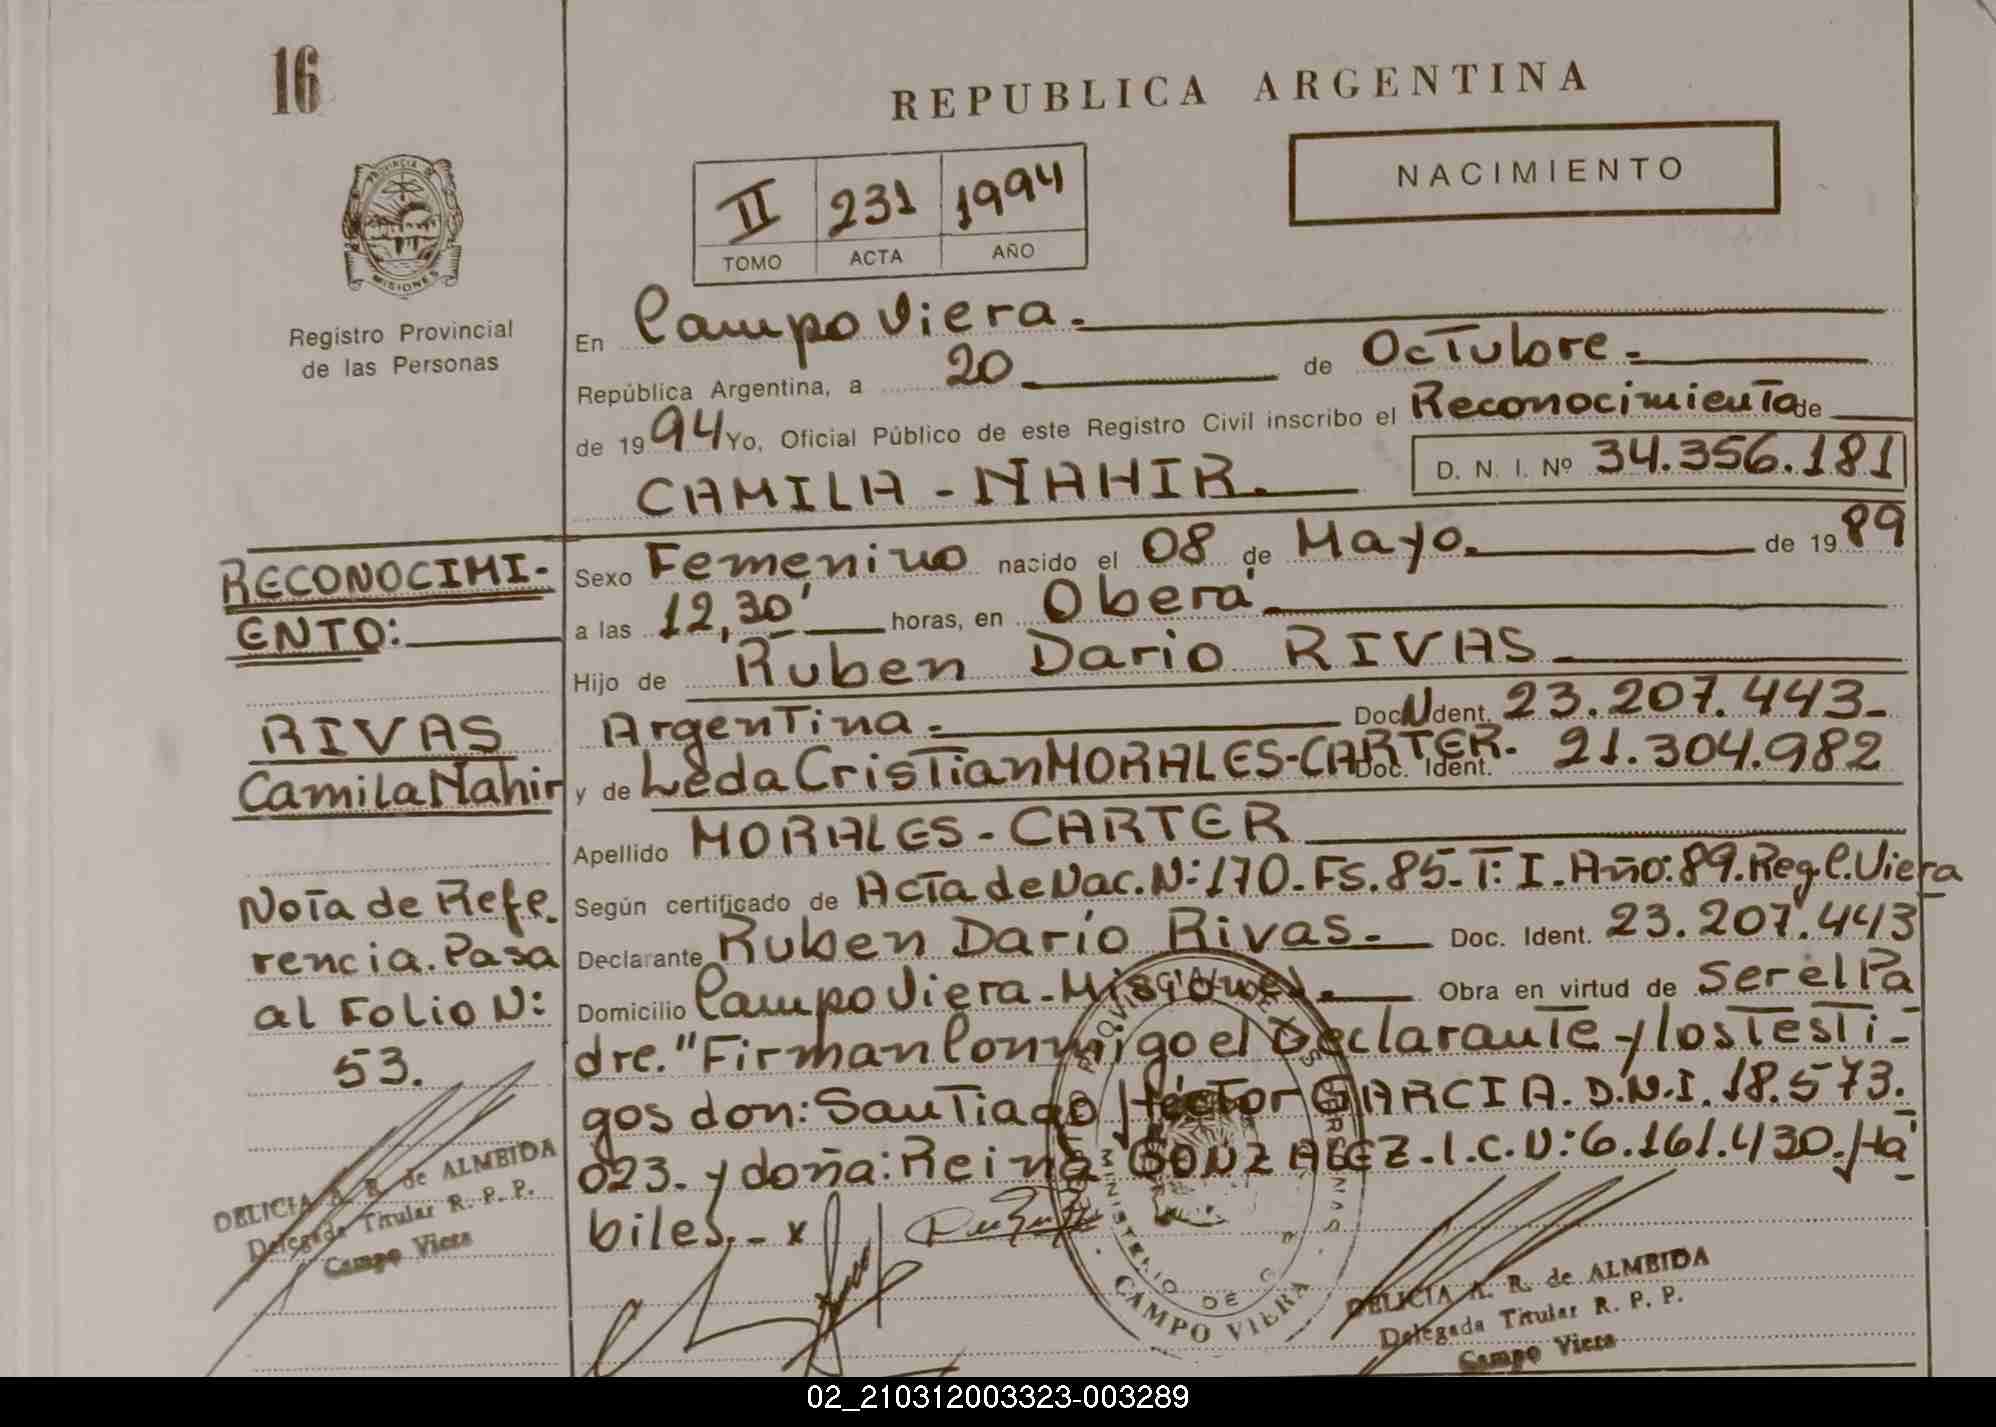 16
REPUBLICA ARGENTINA
NACIMIENTO
II 231 1994
TOMO ACTA AÑO
PROVINCIA D
MISIONES
Registro Provincial
de las Personas
En Campo Viera.
República Argentina, a 20 de Octubre.
de 1994 Yo, Oficial Público de este Registro Civil inscribo el Reconocimiento de
CAMILA - NAHIR. D. N. I. Nº 34.356.181
Sexo Femenino nacido el 08 de Mayo. de 1989
a las 12,30' horas, en Oberá
Hijo de Ruben Dario RIVAS
Argentina. Doc. Ident. 23.207.443-
y de Leda Cristian MORALES-CARTER. Doc. Ident. 21.304.982
Apellido MORALES - CARTER
Según certificado de Acta de Nac. N: 170. Fs. 85. T: I. Año: 89. Reg. C. Viera
Declarante Ruben Darío Rivas. Doc. Ident. 23.207.443
Domicilio Campo Viera - Misiones. Obra en virtud de Ser el Pa
dre." Firman Conmigo el Declarante y los Testi-
gos don: Santiago Héctor GARCIA. D.N.I. 18.573.
023. y doña: Reina GONZALEZ. I.C.N: 6.161.430. Há
biles. - x
RECONOCIMI-
ENTO:
RIVAS
Camila Nahir
Nota de Refe.
rencia. Pasa
al Folio N:
53.
DELICIA A. R. de ALMEIDA
Delegada Titular R. P. P.
Campo Viera
MINISTERIO DE
CAMPO VIERA
DELICIA A. R. de ALMEIDA
Delegada Titular R. P. P.
Campo Viera
02_210312003323-003289